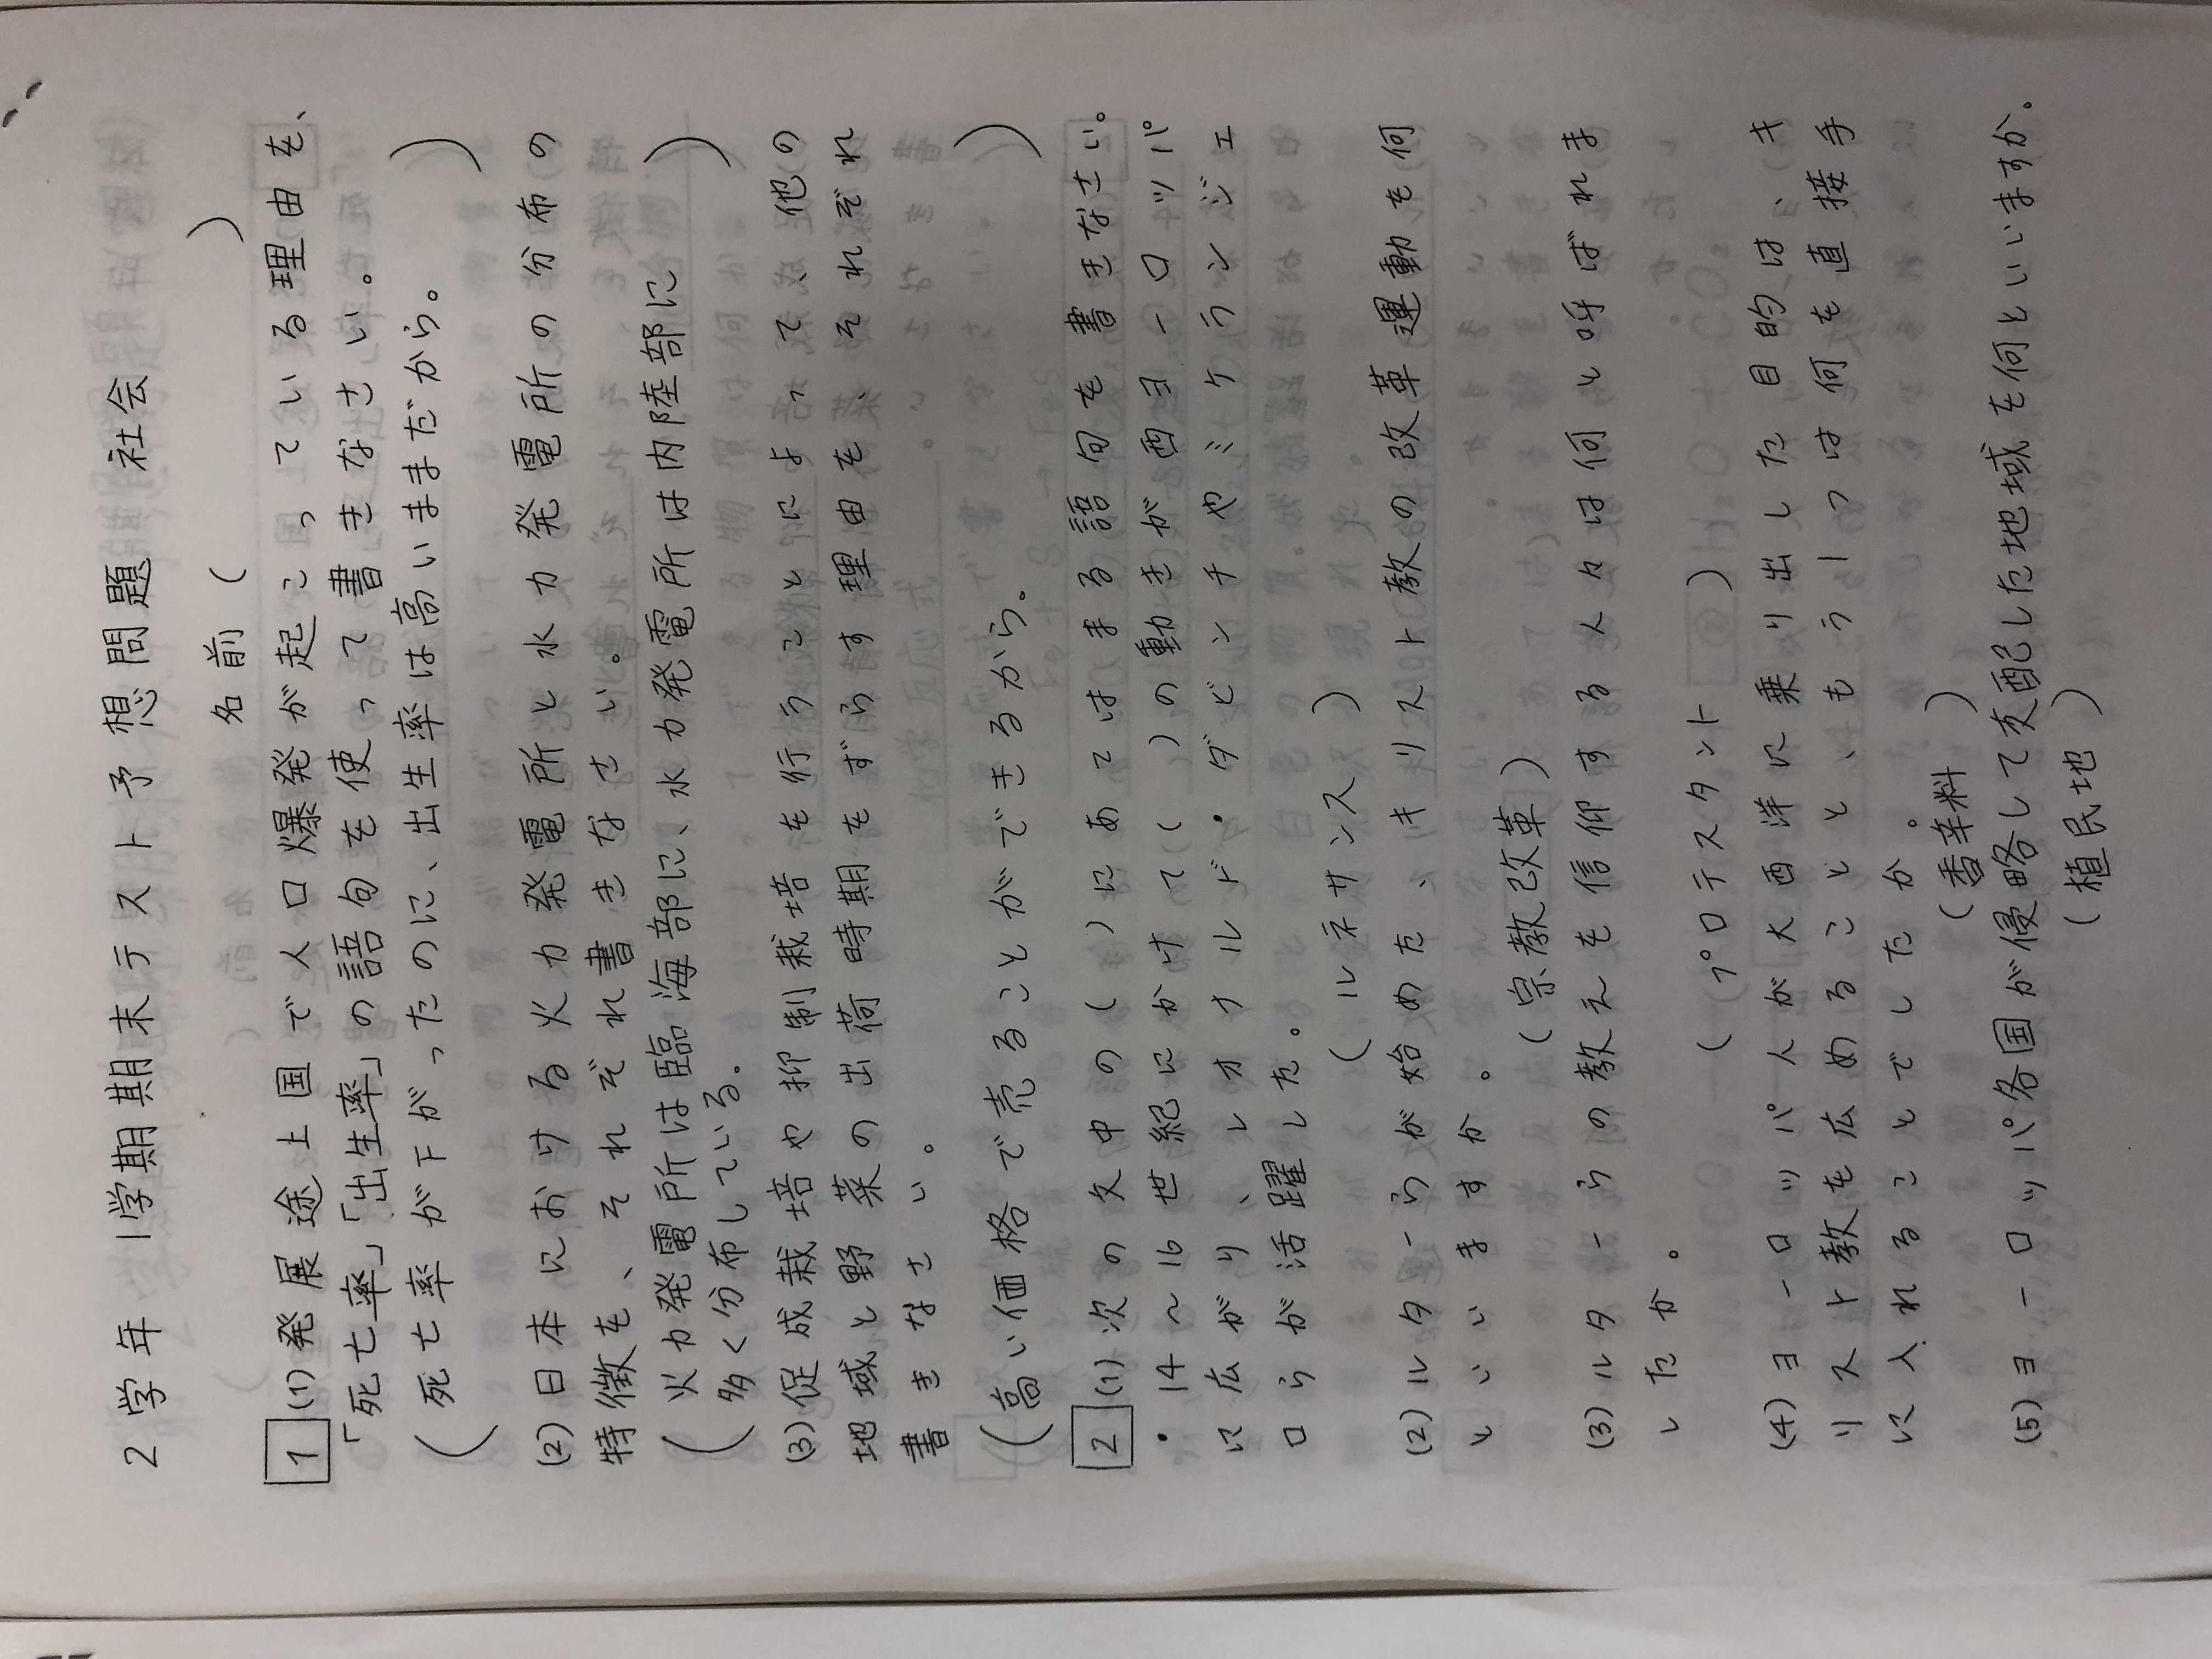 2学年 1学期期末テスト予想問題 社会
名前( )
1 (1)発展途上国で人口爆発が起こっている理由を、
「死亡率」「出生率」の語句を使って書きなさい。
(死亡率が下がったのに、出生率は高いままだから。)
(2)日本における火力発電所と水力発電所の分布の
特徴を、それぞれ書きなさい。
(火力発電所は臨海部に、水力発電所は内陸部に
多く分布している。)
(3)促成栽培や抑制栽培を行うことによって、他の
地域と野菜の出荷時期をずらす理由を、それぞれ
書きなさい。
(高い価格で売ることができるから。)
2 (1)次の文中の( )にあてはまる語句を書きなさい。
・14~16世紀にかけて( )の動きが西ヨーロッパ
に広がり、レオナルド・ダビンチやミケランジェ
ロらが活躍した。
(ルネサンス)
(2)ルターらが始めた、キリスト教の改革運動を何
といいますか。
(宗教改革)
(3)ルターらの教えを信仰する人々は何と呼ばれま
したか。
(プロテスタント)
(4)ヨーロッパ人が大西洋に乗り出した目的は、キ
リスト教を広めることと、もう1つは何を直接手
に入れることでしたか。
(香辛料)
(5)ヨーロッパ各国が侵略して支配した地域を何といいますか。
(植民地)